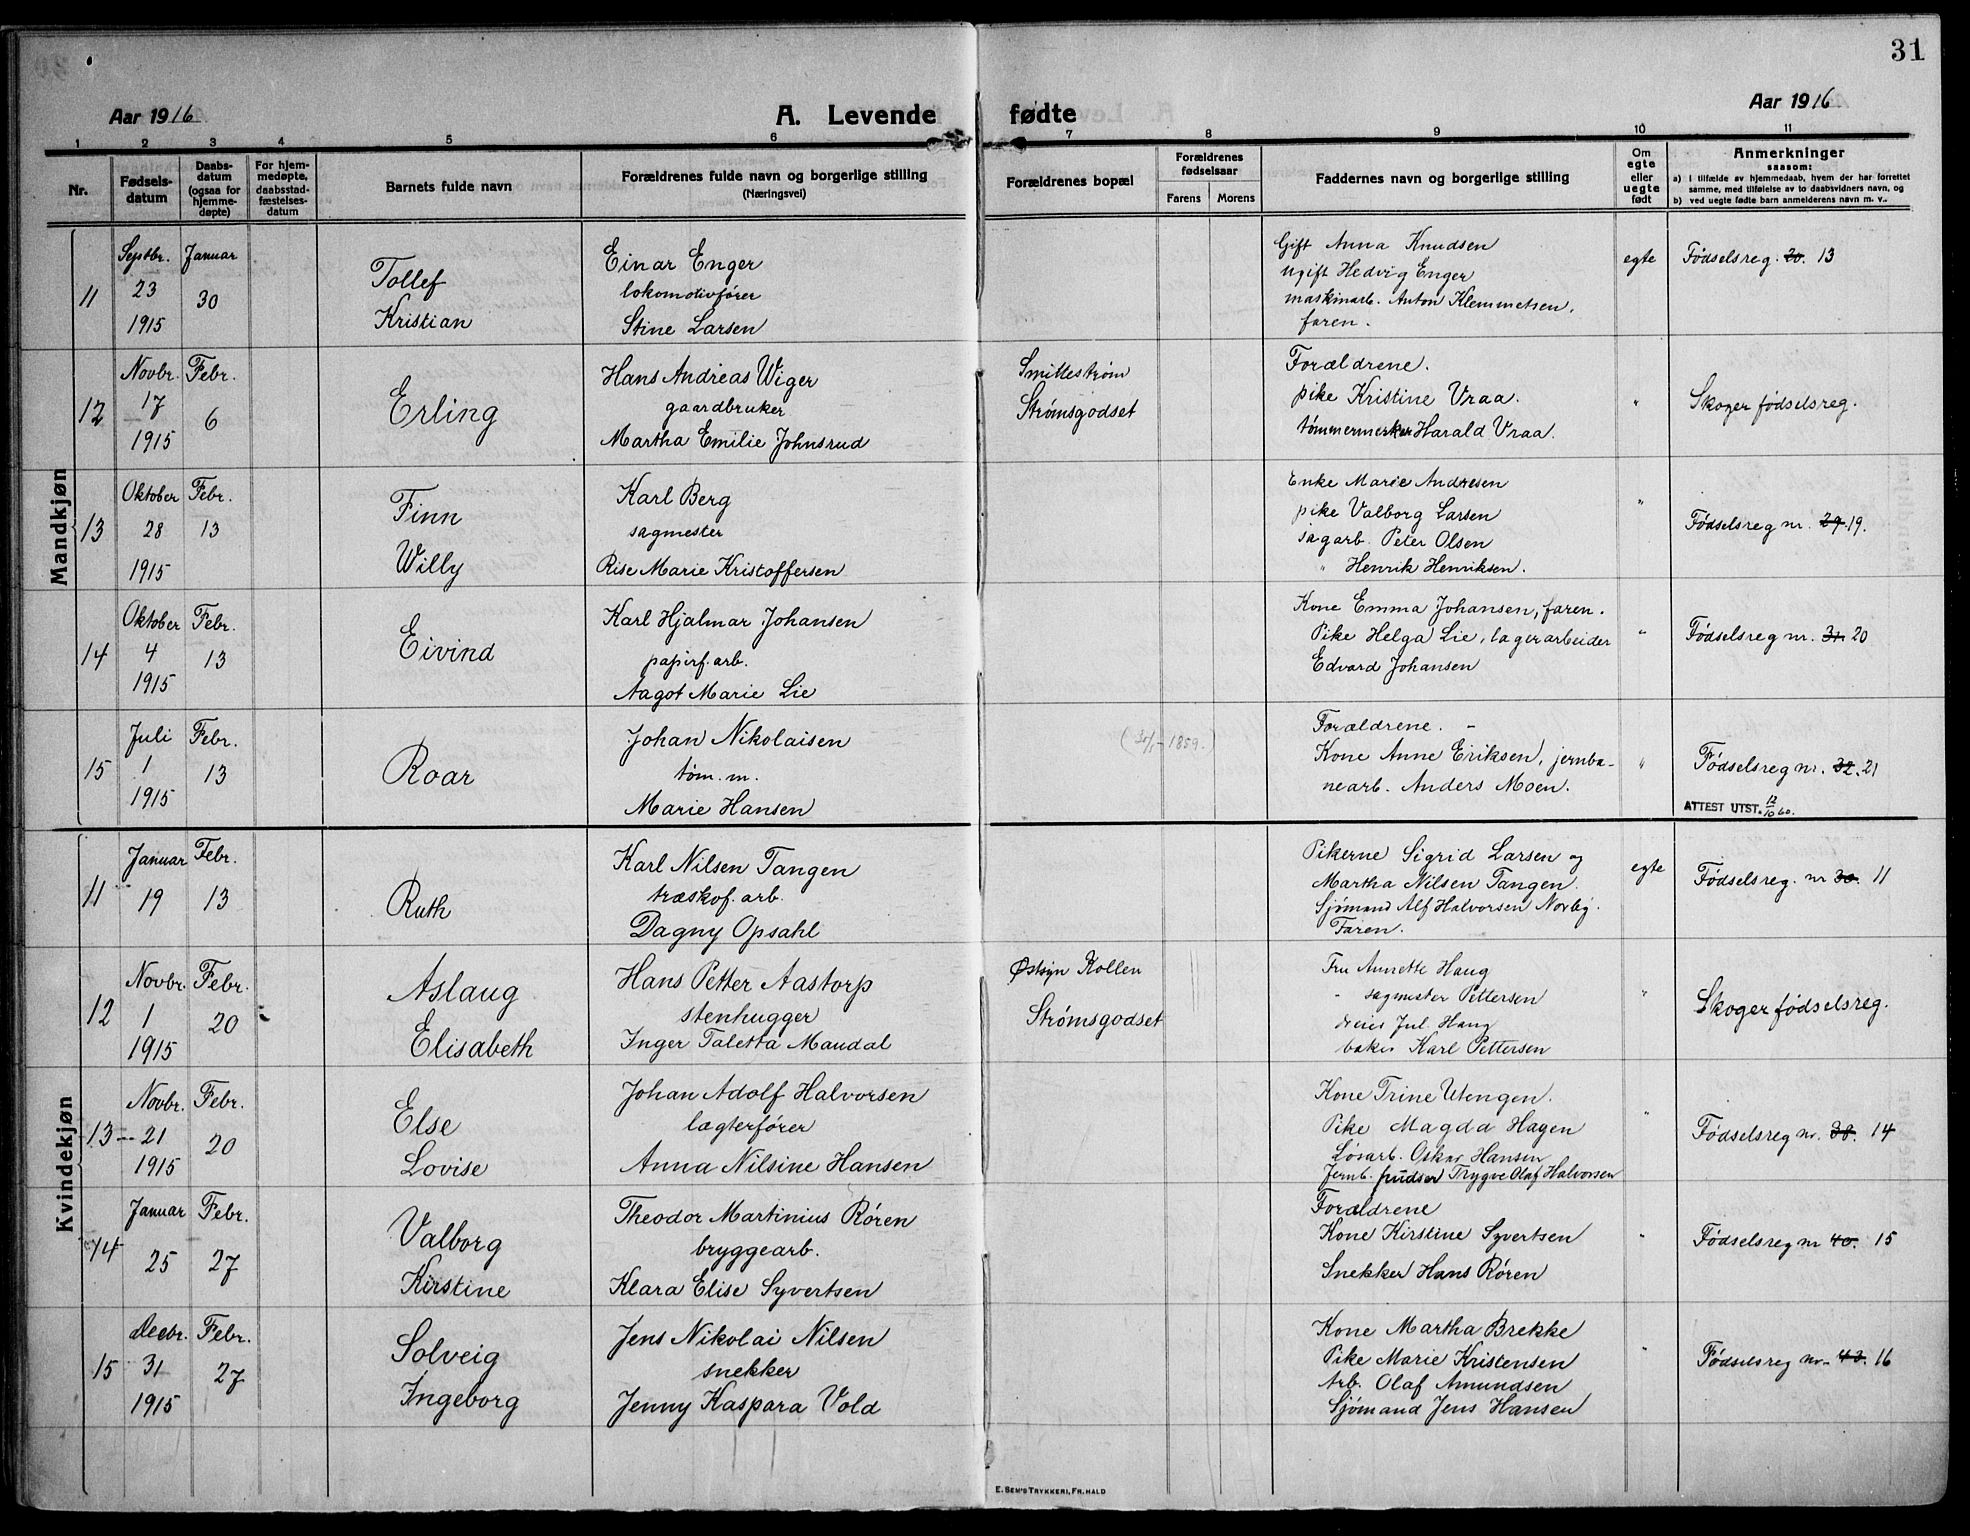 31
Aar 1916
A. Levende fødte
Aar 1916
1 2 3 4 5 6 7 8 9 10 11
Nr.
Fødsels-
datum
Daabs-
datum
(ogsaa for
hjemme-
døpte)
For hjem-
medøpte,
daabsstad-
fæstelses-
datum
Barnets fulde navn
Forældrenes fulde navn og borgerlige stilling
(Næringsvei)
Forældrenes bopæl
Forældrenes
fødselsaar
Farens Morens
Faddernes navn og borgerlige stilling
Om
egte
eller
uegte
født
Anmerkninger
saasom:
a) I tilfælde av hjemmedaab, hvem der har forrettet
samme, med tilføielse av to daabsvidners navn, og
b) ved uegte fødte barn anmelderens navn m. v..
Mandkjøn
11
Septbr.
23
1915
Januar
30
Tollef
Kristian
Einar Enger
lokomotivfører
Stine Larsen
Gift Anna Knudsen
ugift Hedvig Enger
maskinarb. Anton Klemmetsen,
faren.
egte
Fødselsreg. 20. 13
12
Novbr.
17
1915
Febr.
6
Erling
Hans Andreas Wiger
gaardbruker
Martha Emilie Johnsrud
Smittestrøm
Strømsgodset
Forældrene.
pike Kristine Vraa.
tømmermerker Harald Vraa.
"
Skoger fødselsreg.
13
Oktober
28
1915
Febr.
13
Finn
Willy
Karl Berg
sagmester
Rise Marie Kristoffersen
Enke Marie Andresen
pike Valborg Larsen
sagarb. Peter Olsen
" Henrik Henriksen.
"
Fødselsreg nr. 29. 19.
14
Oktober
4
1915
Febr.
13
Eivind
Karl Hjalmar Johansen
papirf. arb.
Aagot Marie Lie
Kone Emma Johansen, faren.
Pike Helga Lie, lagerarbeider
Edvard Johansen
"
Fødselsreg nr. 31. 20
15
Juli
1
1915
Febr.
13
Roar
Johan Nikolaisen
tøm. m.
Marie Hansen
1859.)
Forældrene.
Kone Anne Eriksen, jernba-
nearb. Anders Moen.
"
Fødselsreg nr. 32. 21
ATTEST UTST. 12/10 60.
Kvindekjøn
11
Januar
19
Febr.
13
Ruth
Karl Nilsen Tangen
træskof. arb.
Dagny Opsahl
Pikerne Sigrid Larsen og
Martha Nilsen Tangen.
Sjømand Alf Halvorsen Norby.
Faren.
egte
Fødselsreg. nr 30. 11
12
Novbr.
1
1915
Febr.
20
Aslaug
Elisabeth
Hans Petter Aastorp
stenhugger
Inger Taletta Maudal
Kollen
Strømsgodset
Fru Annette Haug
" sagmester Pettersen
dreier Jul. Haug
baker Karl Pettersen
"
Skoger fødselsreg.
13
Novbr.
21
1915
Febr.
20
Else
Lovise
Johan Adolf Halvorsen
lægterfører
Anna Nilsine Hansen
Kone Trine Utengen.
Pike Magda Hagen
Løsarb. Oskar Hansen
Jernb. pudser Trygve Olaf Halvorsen
"
Fødselsreg nr. 38. 14
14
Januar
25
Febr.
27
Valborg
Kirstine
Theodor Martinius Røren
bryggearb.
Klara Elise Syvertsen
Forældrene
Kone Kirstine Syvertsen
Snekker Hans Røren
"
Fødselsreg nr 40. 15
15
Decbr.
31
1915
Febr.
27
Solveig
Ingeborg
Jens Nikolai Nilsen
snekker
Jenny Kaspara Vold
Kone Martha Brekke
Pike Marie Kristensen
Arb. Olaf Amundsen
Sjømand Jens Hansen
"
Fødselsreg nr. 43. 16
E. SEM'S TRYKKERI, FR. HALD